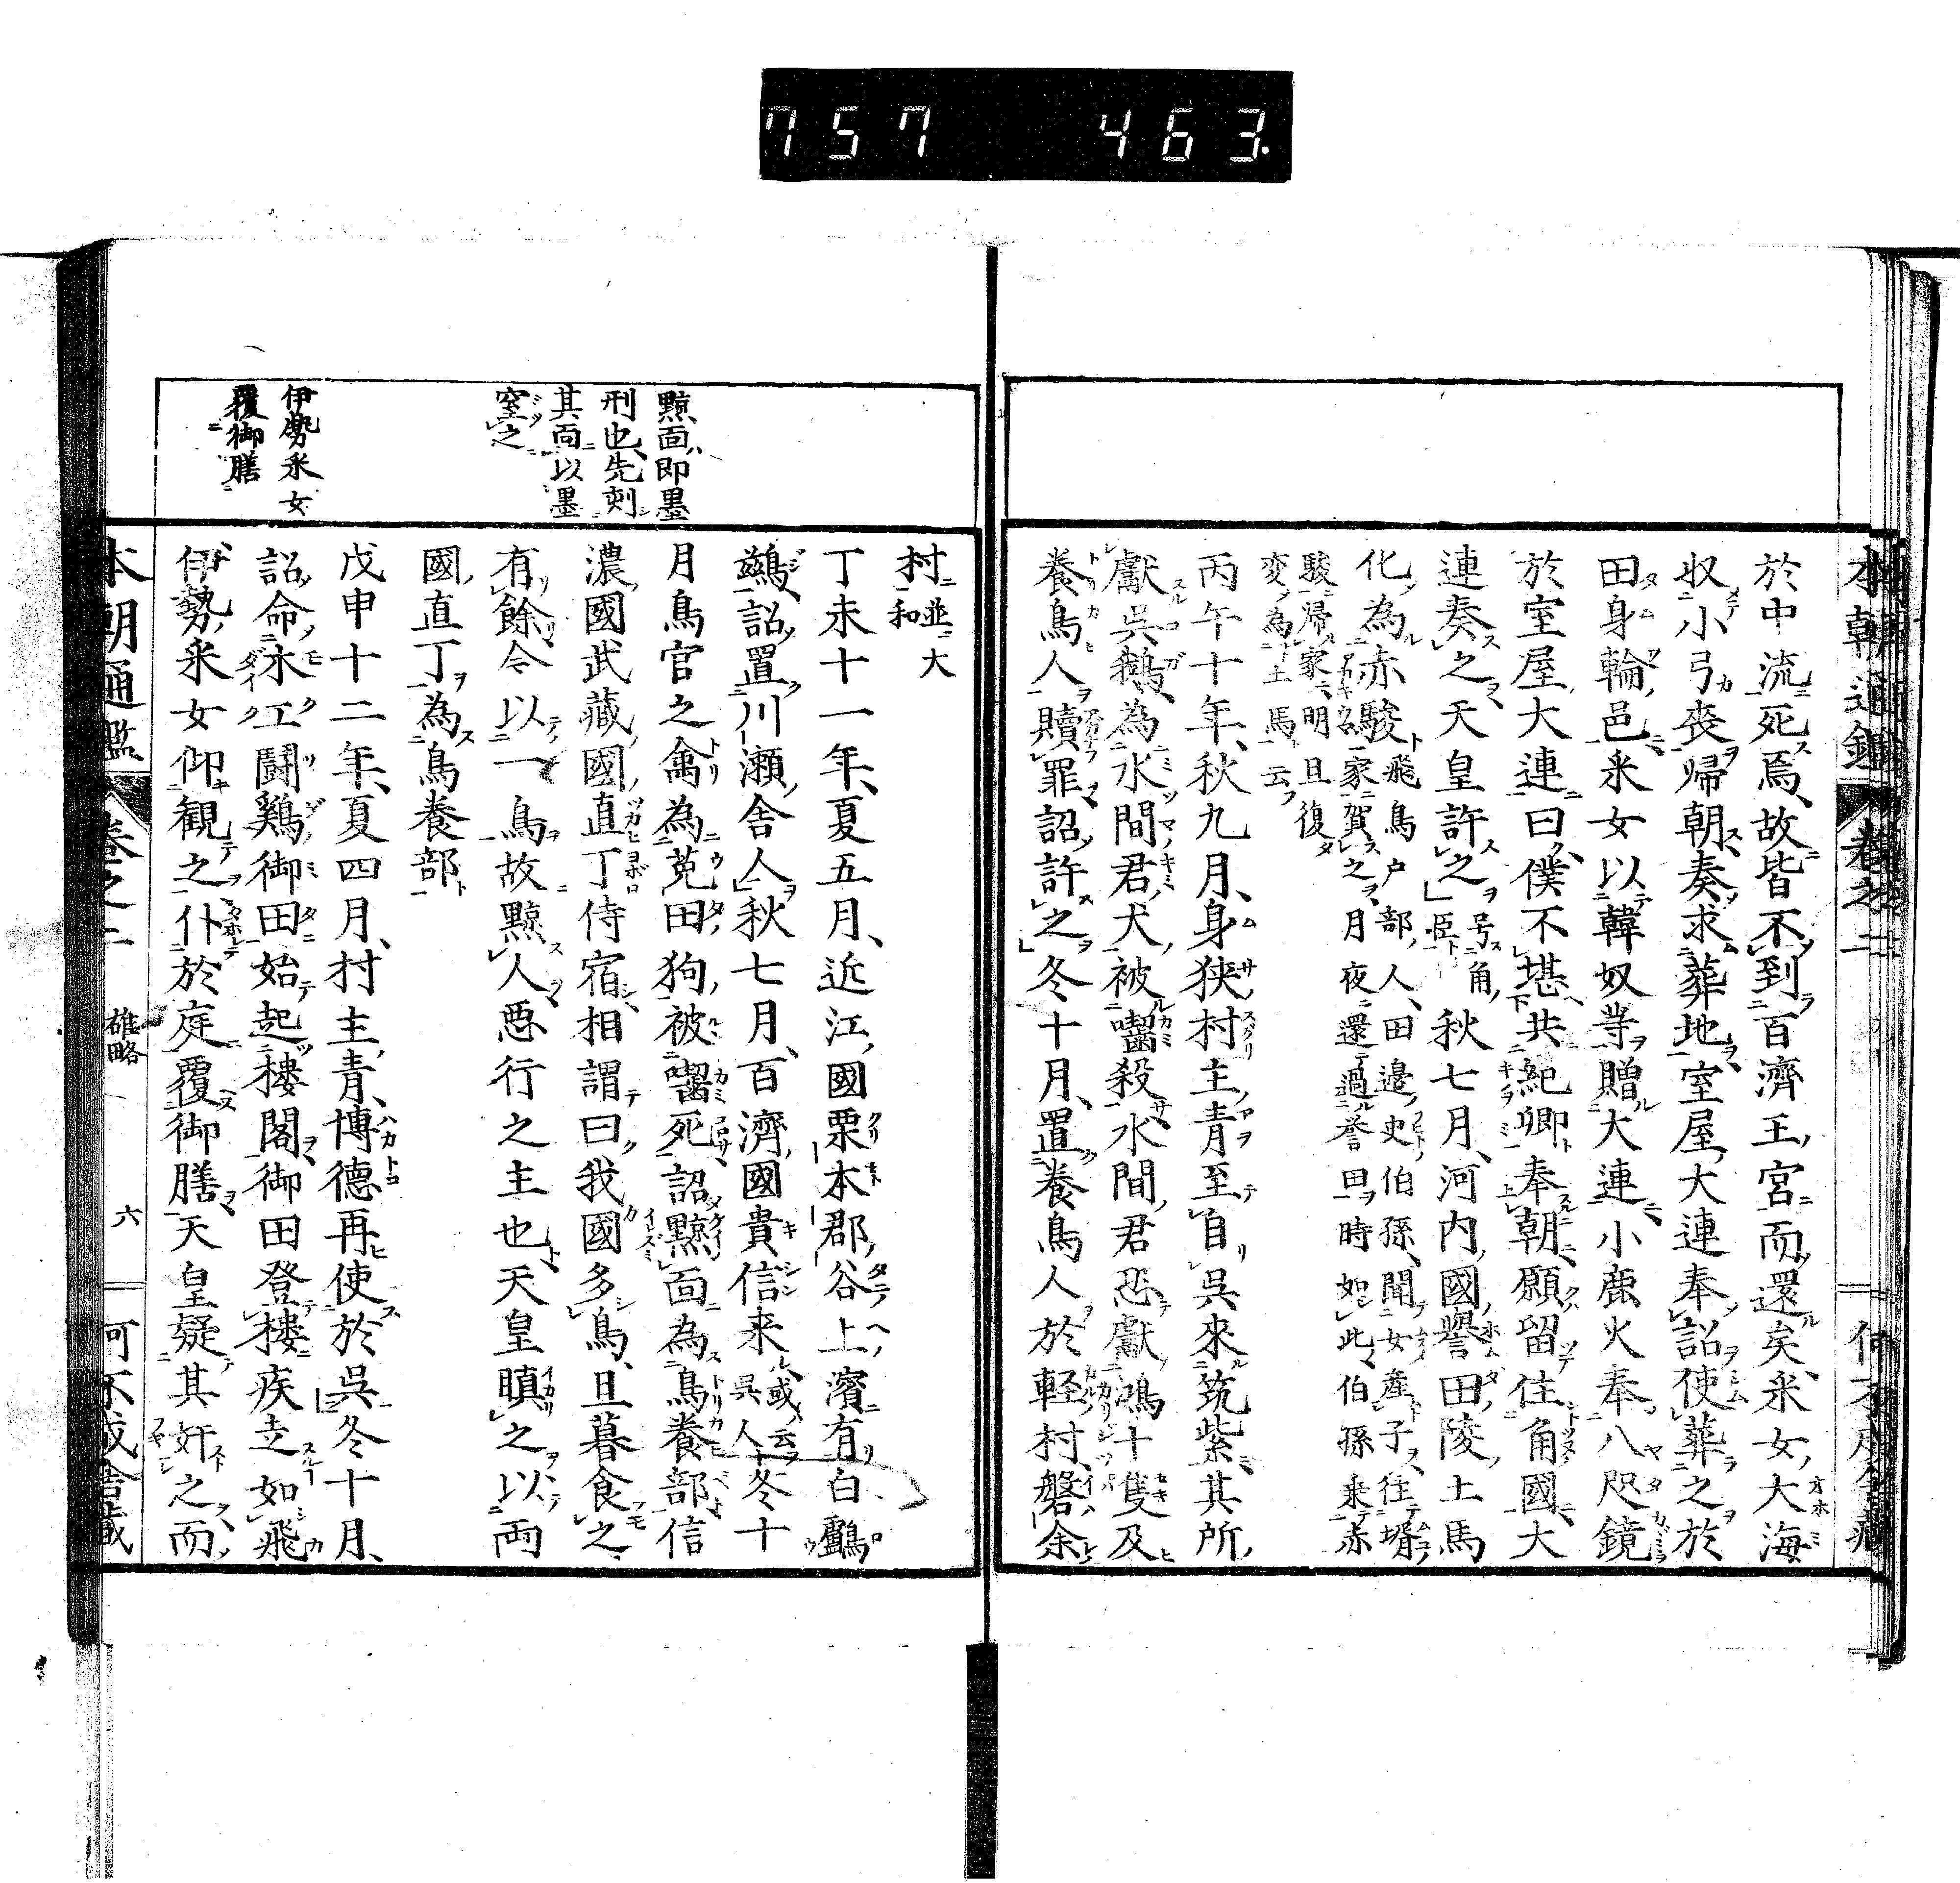 757 463.
本朝通鑑 卷之二
於中流死焉、故皆不到百濟王宮而還矣、采女大海
収小弓喪帰朝、奏求葬地、室屋大連奉詔使葬之於
田身輪邑、采女以韓奴等贈大連、小鹿火奉八咫鏡
於室屋大連曰、僕不堪共紀卿奉朝、願留住角國、大
連奏之、天皇許之、号角臣 秋七月、河内國譽田陵土馬
化為赤駿、飛鳥戸部人、田邉史伯孫、聞女産子、往壻
家賀之、月夜還過誉田時如此、伯孫乗赤
駿帰家、明旦復
変為土馬云
丙午十年、秋九月、身狭村主青至自呉來筑紫、其所
獻呉鵝、為水間君犬被囓殺、水間君恐獻鴻十隻及
養鳥人贖罪、詔許之、冬十月、置養鳥人於軽村磐余
村並大和
丁未十一年、夏五月、近江國栗本郡谷上濱有白鸕
鷀、詔置川瀬舎人、秋七月、百濟國貴信来、或云呉人、冬十
月、鳥官之禽為菟田狗被囓死、詔黥面為鳥養部、信
濃國武藏國直丁侍宿、相謂曰、我國多鳥、旦暮食之
有餘、今以一鳥故黥人、悪行之主也、天皇瞋之、以両
國直丁為鳥養部
戊申十二年、夏四月、村主青、博德再使於呉、冬十月、
詔命木工闘鷄御田始起樓閣、御田登樓疾走如飛
伊勢采女仰観之、仆於庭、覆御膳、天皇疑其奸之、而
黥面即墨
刑也、先刻
其面以墨
窒之
伊勢采女
覆御膳
本朝通鑑 卷之二 雄略 六 何不成舎蔵